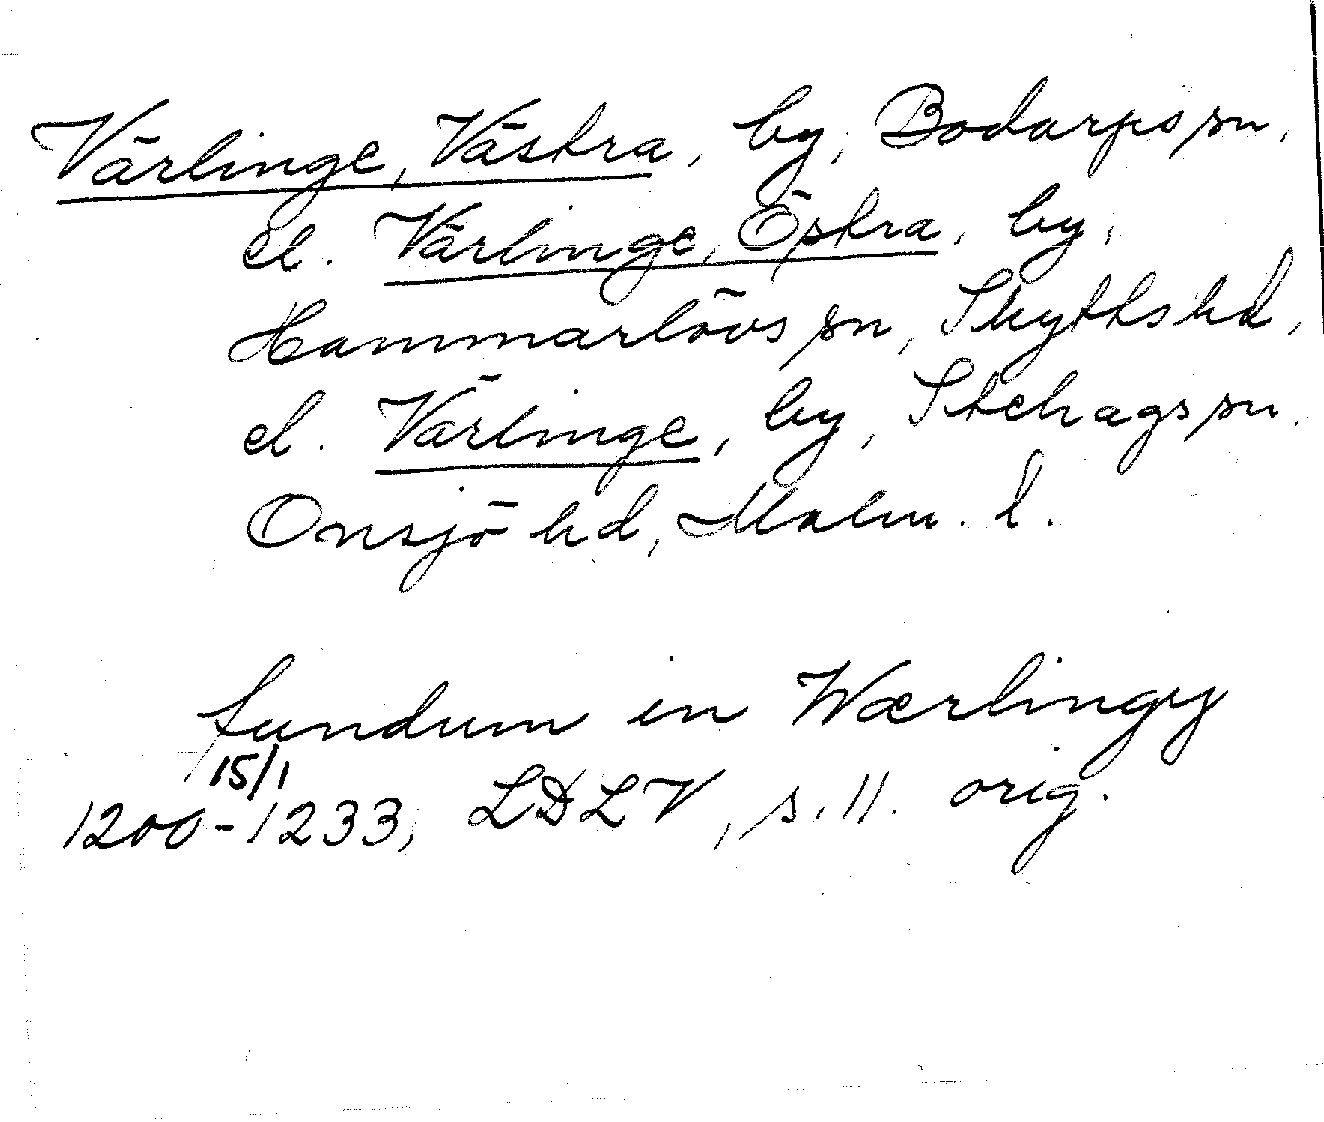 Värlinge, Västra, by, Bodarps sn,
el. Värlinge, Östra, by,
Hammarlövs sn, Skytts hd,
el. Värlinge, by, Stehags sn.
Onsjö hd, Malm. l.
fundum in Wærlingy
15/1
1200-1233, LDLV, s. 11. orig.